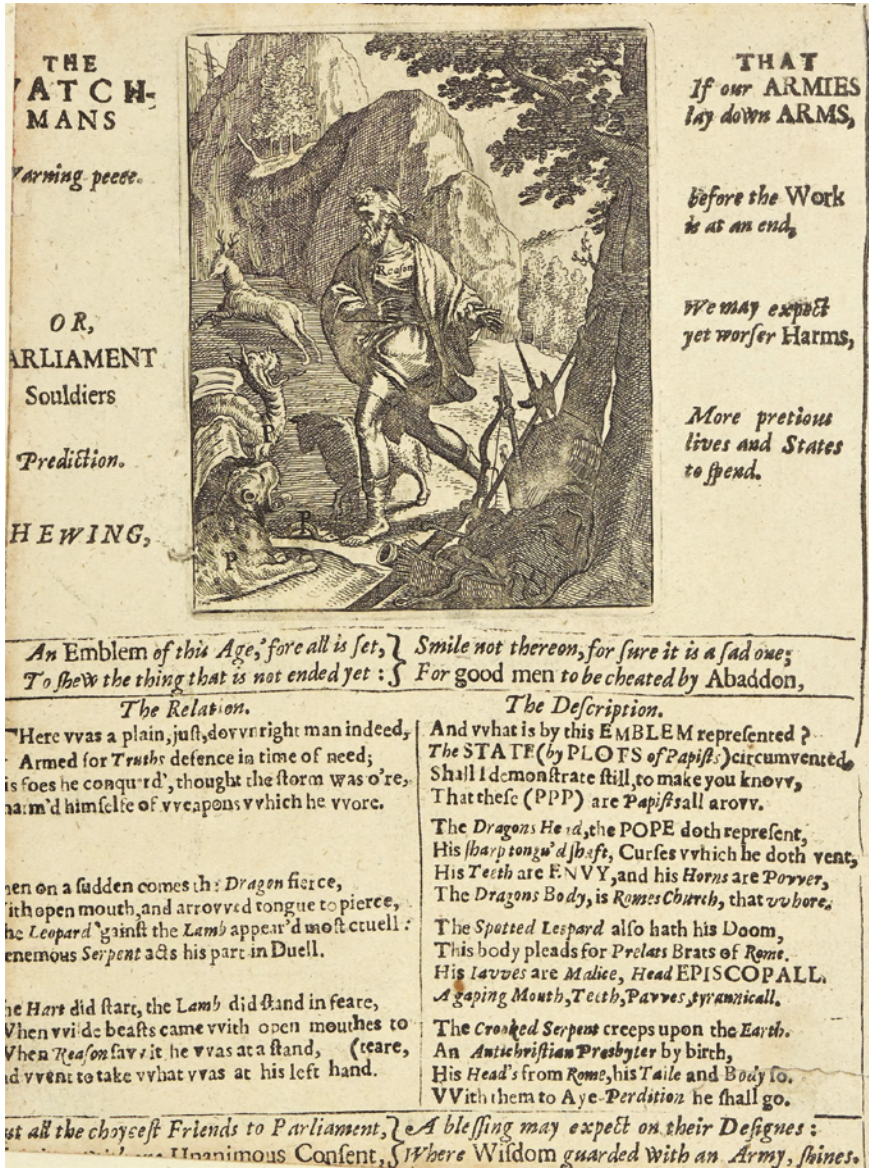 THE
ATCH-
MANS
arning peece.
OR,
ARLIAMENT
Souldiers
Prediction.
HEWING,
THAT
If our ARMIES
lay down ARMS,
before the Work
is at an end,
We may expect
yet worser Harms,
More pretious
lives and States
to spend.
Reason
P
P
P
An Emblem of this Age, 'fore all is set, }
To shew the thing that is not ended yet : }
Smile not thereon, for sure it is a sad one;
For good men to be cheated by Abaddon,
The Relation.
Here vvas a plain, just, dovvnright man indeed,
Armed for Truths defence in time of need;
is foes he conquer'd', thought the storm was o're,
narm'd himselfe of vveapons vvhich he vvore.
hen on a sudden comes the Dragon fierce,
ith open mouth, and arrovved tongue to pierce,
he Leopard 'gainst the Lamb appear'd most cruell :
enemous Serpent acts his part in Duell.
he Hart did start, the Lamb did stand in feare,
When vvilde beasts came vvith open mouthes to
(teare,
When Reason savv it he vvas at a stand,
nd vvent to take vvhat vvas at his left hand.
The Description.
And vvhat is by this EMBLEM represented ?
The STATE (by PLOTS of Papists) circumvented,
Shall I demonstrate still, to make you knovv,
That these (PPP) are Papists all arovv.
The Dragons Head, the POPE doth represent,
His sharp tongu'd shaft, Curses vvhich he doth vent,
His Teeth are ENVY, and his Horns are Povver,
The Dragons Body, is Romes Church, that vvhore.
The Spotted Lespard also hath his Doom,
This body pleads for Prelats Brats of Rome.
His Iavves are Malice, Head EPISCOPALL.
A gaping Mouth, Teeth, Pavves, tyrannicall.
The Crooked Serpent creeps upon the Earth.
An Antichristian Presbyter by birth,
His Head's from Rome, his Taile and Body so.
VVith them to Aye-Perdition he shall go.
st all the choycest Friends to Parliament, }
Unanimous Consent, }
A blessing may expect on their Designes :
Where Wisdom guarded with an Army, shines.